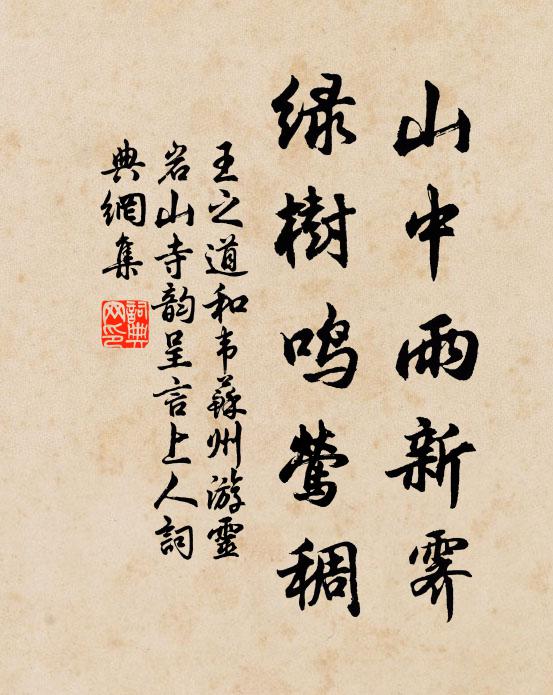 山中雨新霁
绿樹鸣莺稠
王之道和韦蘇州游靈
岩山寺韵呈言上人詞
典網集
詞典网印